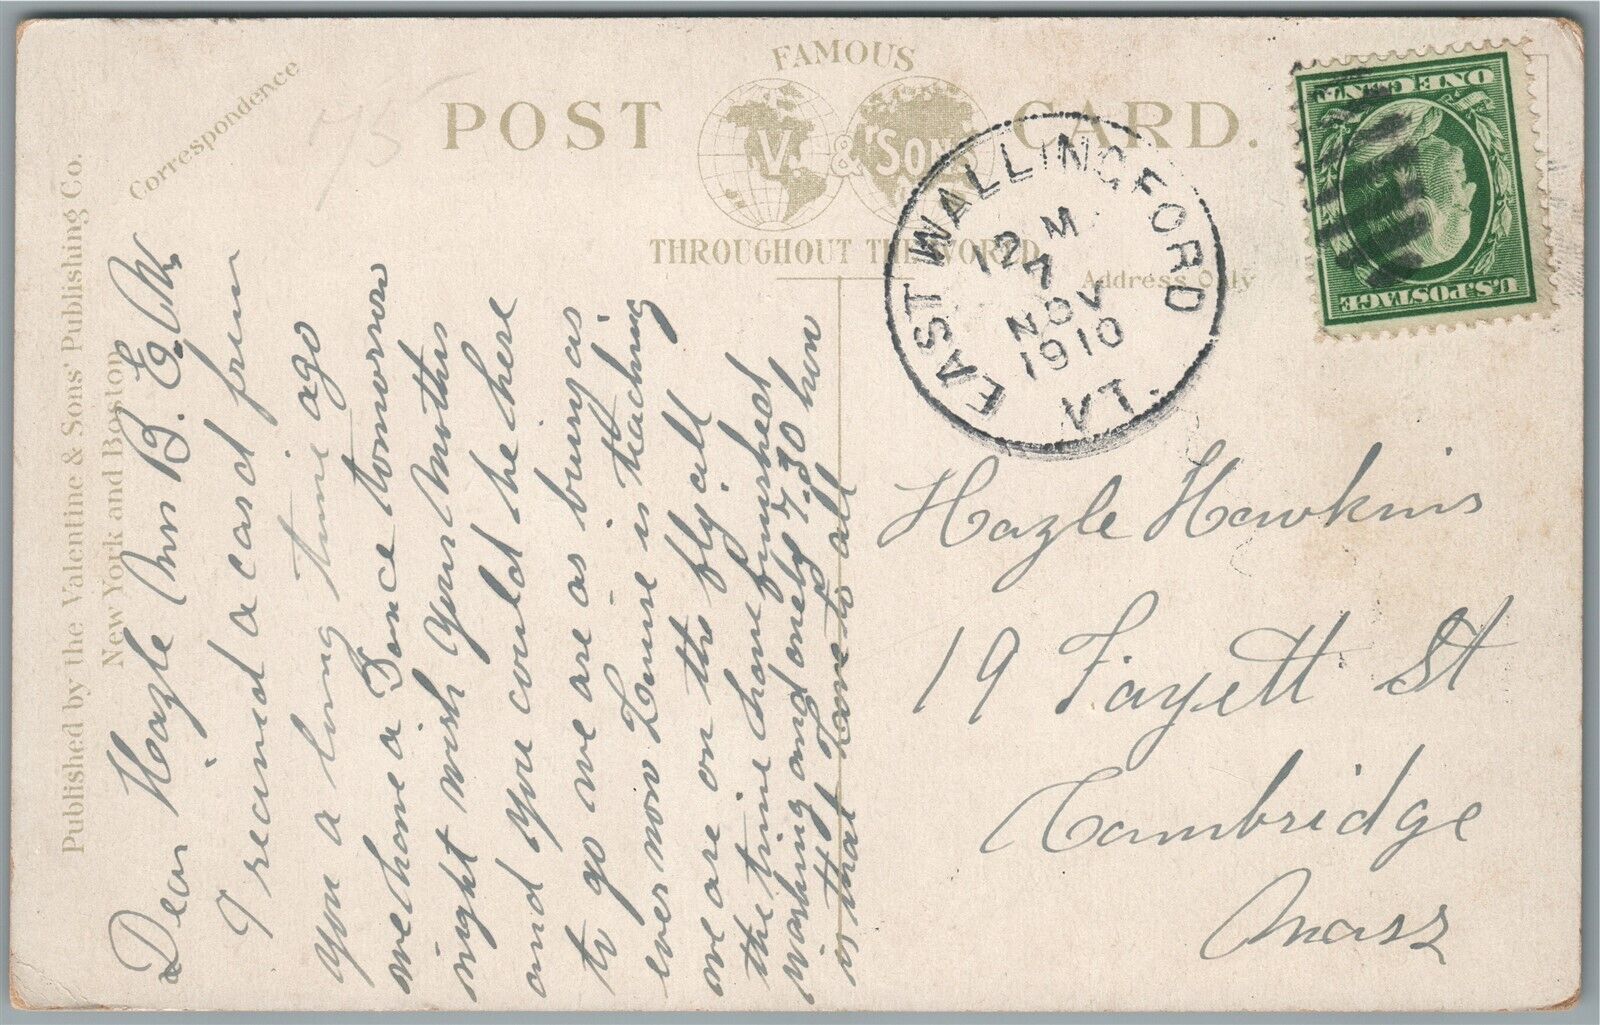 Published by the Valentine & Sons' Publishing Co.
New York and Boston
Correspondence
FAMOUS
POST CARD.
V. & SONS
THROUGHOUT THE WORLD
Address Only
EAST WALLINGFORD
12 M
7
NOV
1910
ONE CENT
U.S. POSTAGE
Dear Hazle Mrs B. E. W.
I recived a card from
you a long time ago
we have a Dance tomorrow
night wish your Mother
and you could be here
to go we are as busy as
ever now Louise is teaching
we are on the fly all
the time have finished
washing and only 7.30 how
is that Love to all
Hazle Hawkins
19 Fayett St
Cambridge
Mass